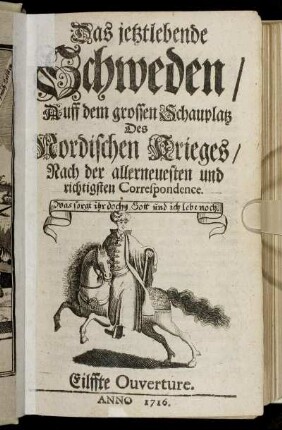 Das jetztlebende
Schweden/
Auff dem grossen Schauplatz
Des
Nordischen Krieges/
Nach der allerneuesten und
richtigsten Correspondence.
Was sorgt ihr doch? Gott und ich lebt noch.
Eilffte Ouverture.
ANNO 1716.